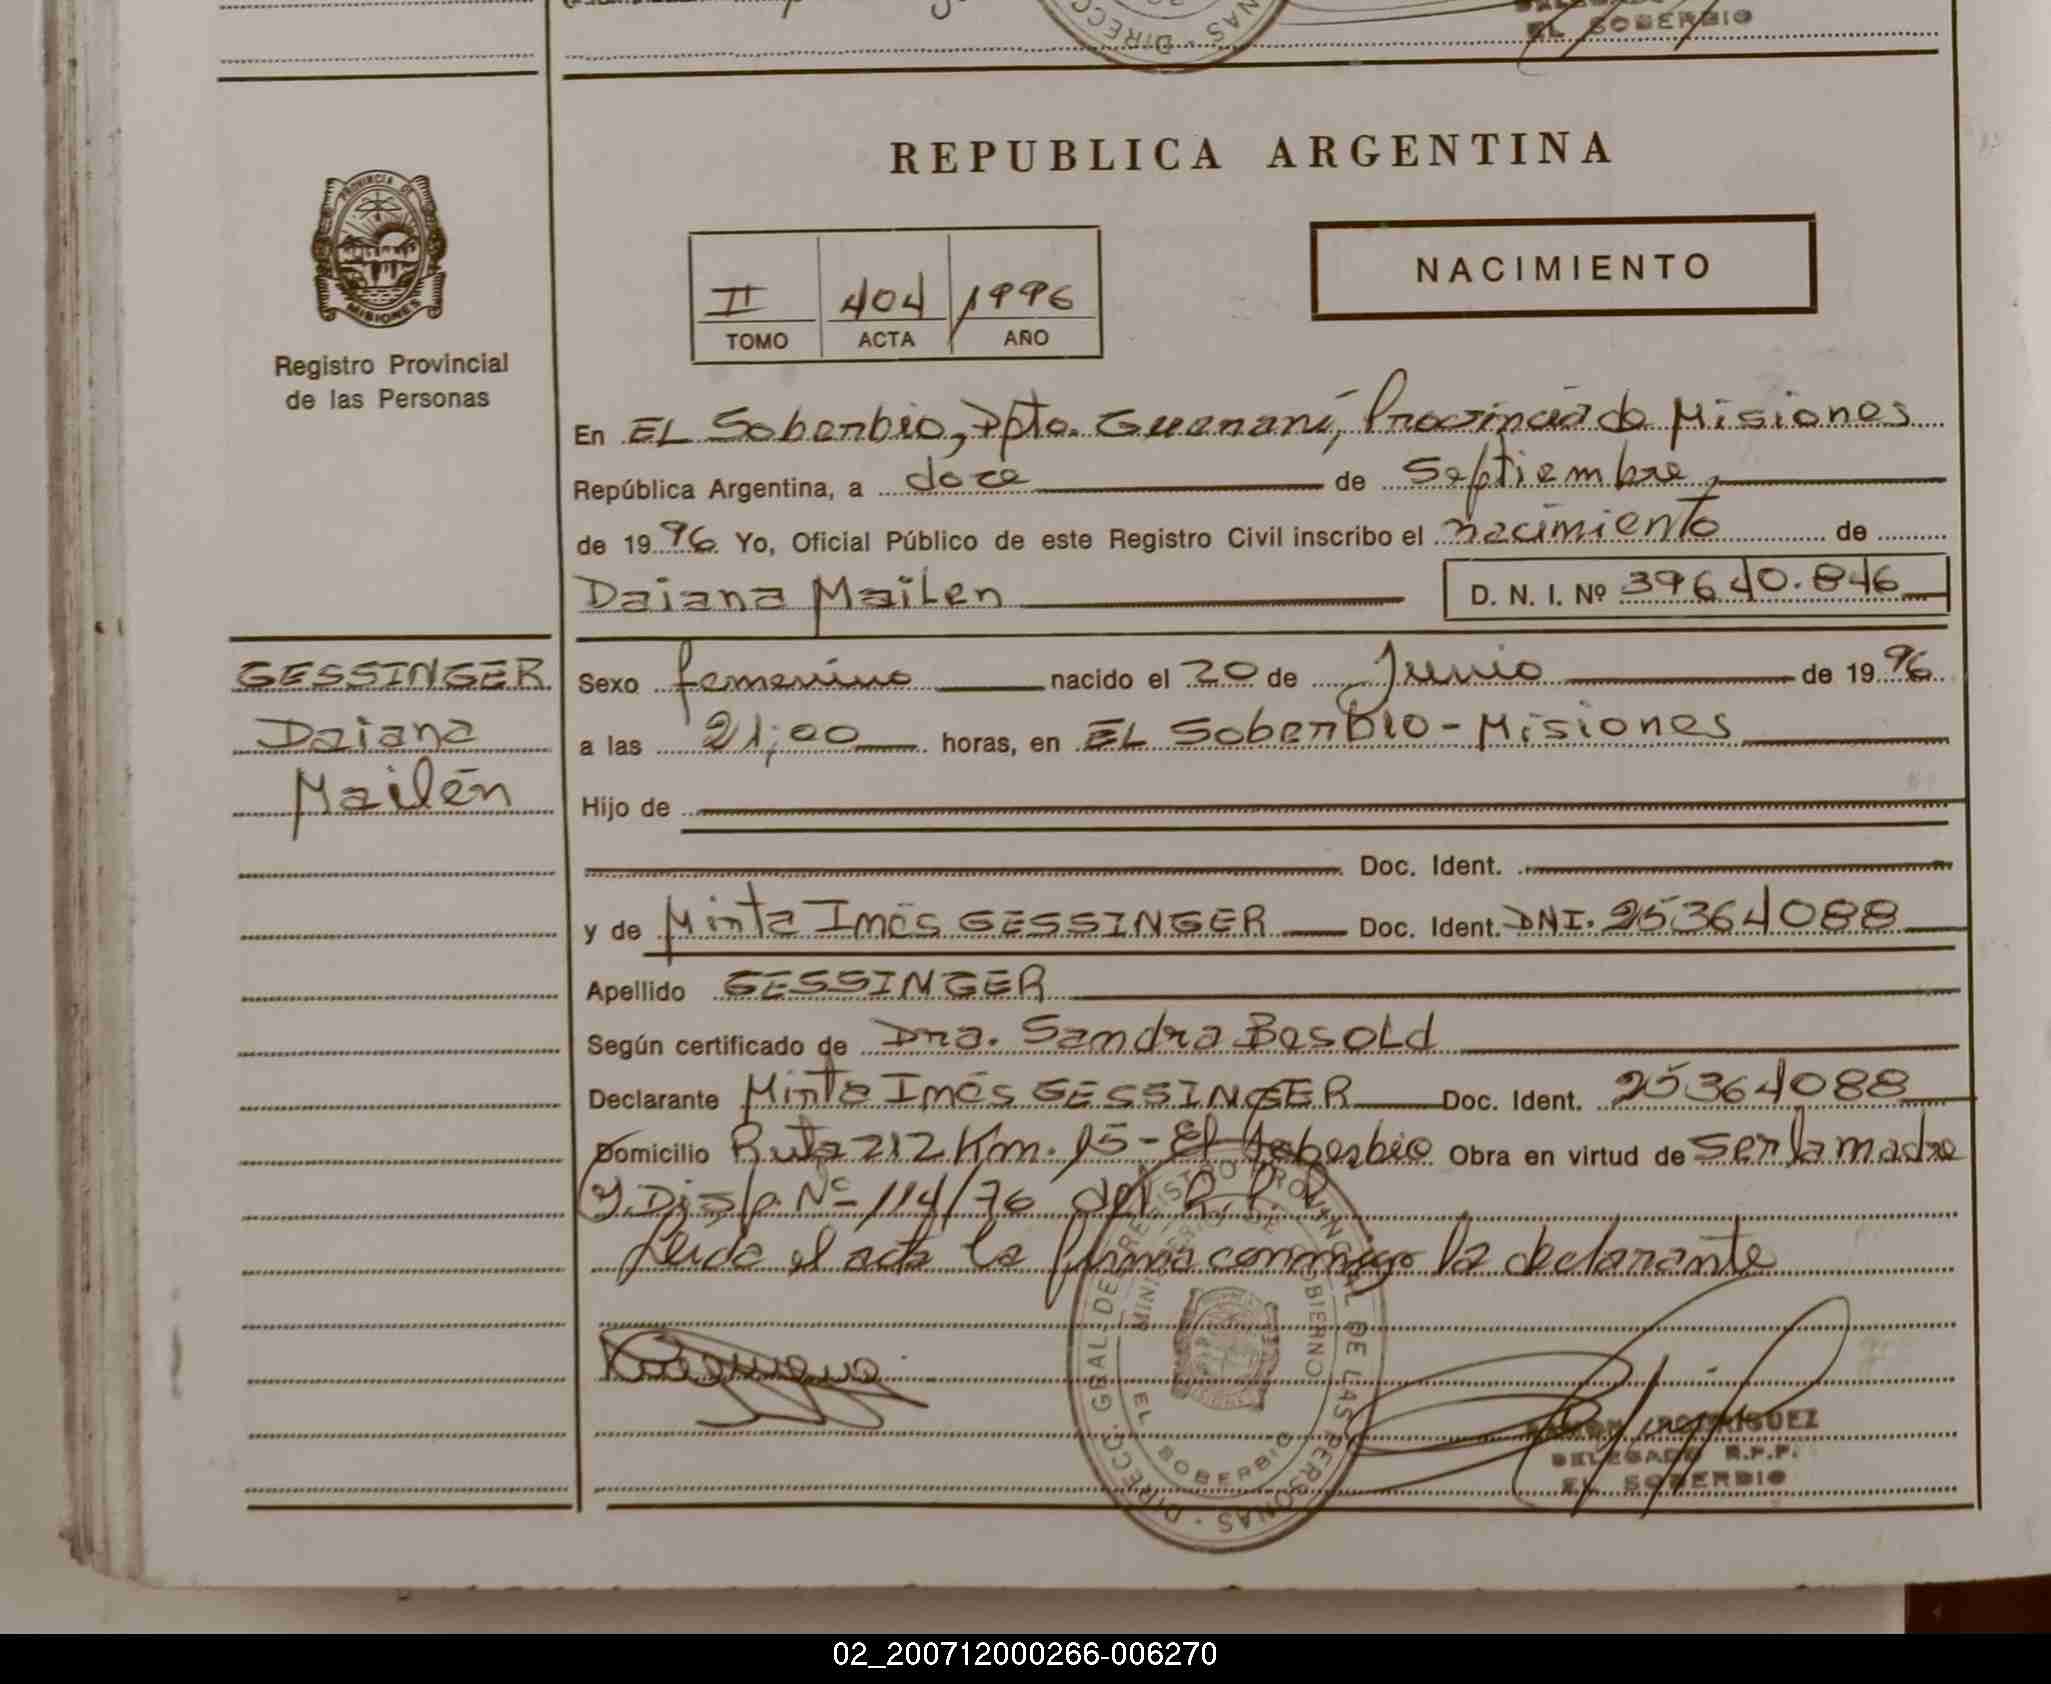 EL SOBERBIO
REPUBLICA ARGENTINA
PROVINCIA DE
MISIONES
Registro Provincial
de las Personas
II 404 1996
TOMO ACTA AÑO
NACIMIENTO
En EL Soberbio, Dpto. Guaraní, Provincia de Misiones
República Argentina, a doce de Septiembre,
de 1996 Yo, Oficial Público de este Registro Civil inscribo el nacimiento de
Daiana Mailen D. N. I. Nº 39640.846
GESSINGER
Daiana
Mailén
Sexo femenino nacido el 20 de Junio de 1996
a las 21,00 horas, en EL Soberbio - Misiones
Hijo de
Doc. Ident.
y de Mirta Inés GESSINGER Doc. Ident. DNI. 25364088
Apellido GESSINGER
Según certificado de Dra. Sandra Besold
Declarante Mirta Inés GESSINGER Doc. Ident. 25364088
Domicilio Ruta 212 Km. 15 - El Soberbio Obra en virtud de ser la madre
y Disp. Nº 114/76 del R. P. P.
Leída el acta la firma conmigo la declarante
DIRECC. GRAL. DEL REGISTRO PROVINCIAL DE LAS PERSONAS
MINISTERIO DE GOBIERNO
EL SOBERBIO
RAMON RODRIGUEZ
DELEGADO R.P.P.
EL SOBERBIO
02_200712000266-006270